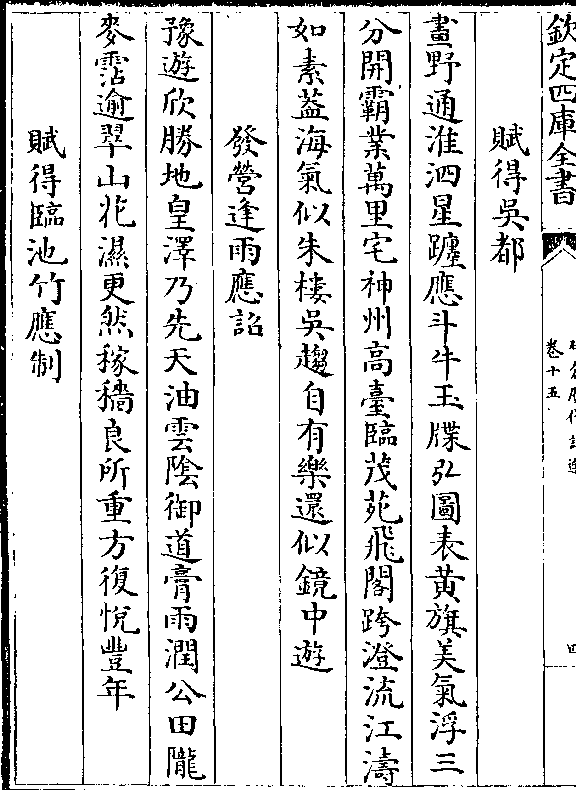 欽定四庫全書
卷十五
四
賦得吳都
畫野通淮泗星躔應斗牛玉牒弘圖表黄旗美氣浮三
分開霸業萬里宅神州高臺臨茂苑飛閣跨澄流江濤
如素葢海氣似朱樓吳趨自有樂還似鏡中遊
發營逢雨應詔
豫遊欣勝地皇澤乃先天油雲隂御道膏雨潤公田隴
麥霑逾翠山花濕更然稼穡良所重方復悅豐年
賦得臨池竹應制